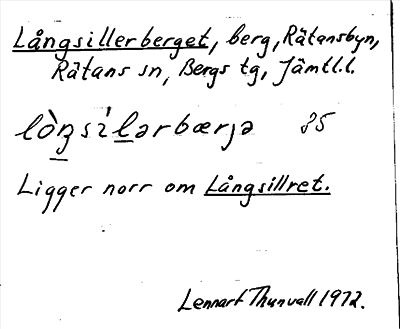 Långsillerberget, berg, Rätansbyn,
Rätans sn, Bergs tg, Jämtl.l.
lòŋsìlərbærjə 85
Ligger norr om Långsillret.
Lennart Thunvall 1972.